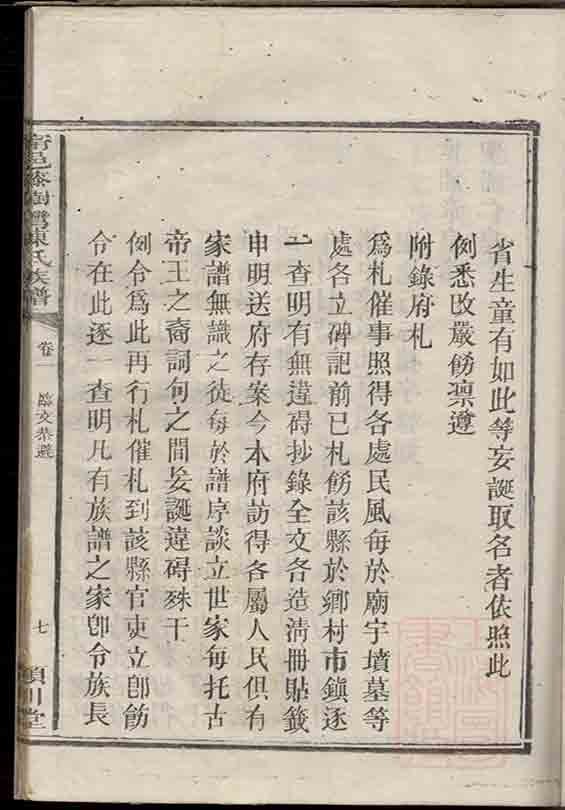 省生童有如此等妄誕取名者依照此
例悉改嚴飭禀遵
附錄府札
爲札催事照得各處民風每於廟宇墳墓等
處各立碑記前已札飭該縣於鄉村市鎮逐
一查明有無違碍抄錄全文各造清冊貼籖
申明送府存案今本府訪得各屬人民俱有
家譜無識之徒每於譜序談立世家每托古
帝王之裔詞句之間妄誕違碍殊干
例令爲此再行札催札到該縣官吏立卽飭
令在此逐一查明凡有族譜之家卽令族長
陳氏族譜
卷一
臨文恭避
七
潁川堂